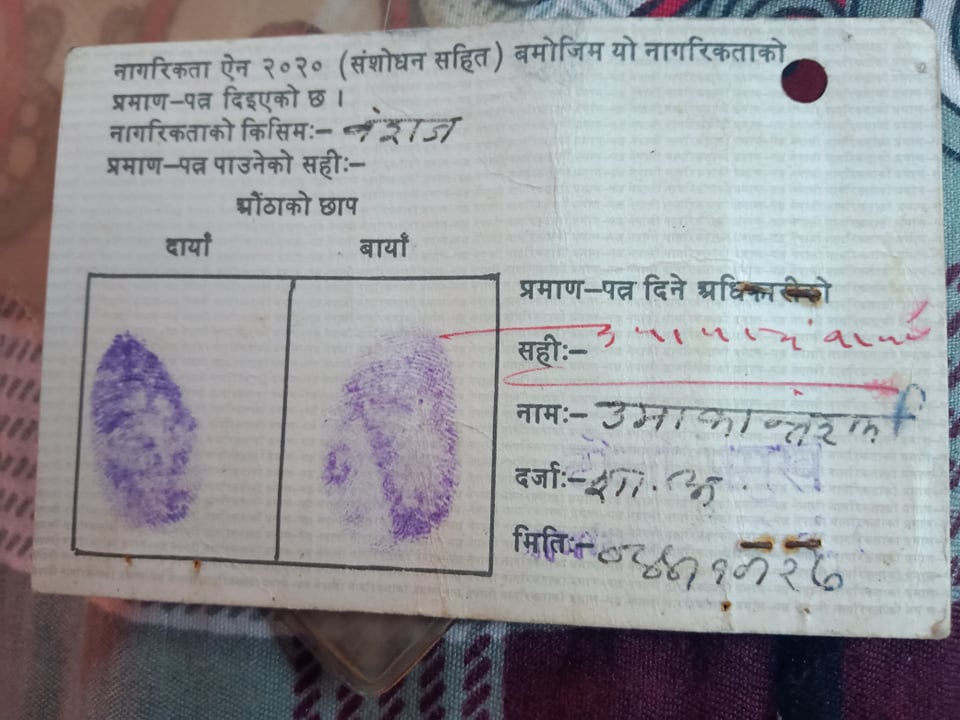 नागरिकता ऐन २०२० (संशोधन सहित) बमोजिम यो नागरिकताको
प्रमाण–पत्र दिइएको छ ।
नागरिकताको किसिमः– वंशज
प्रमाण–पत्र पाउनेको सहीः–
औंठाको छाप
दायाँ बायाँ
प्रमाण–पत्र दिने अधिकारीको
सहीः–
नामः– उमाकान्त
दर्जाः– शा.अ.
मितिः–